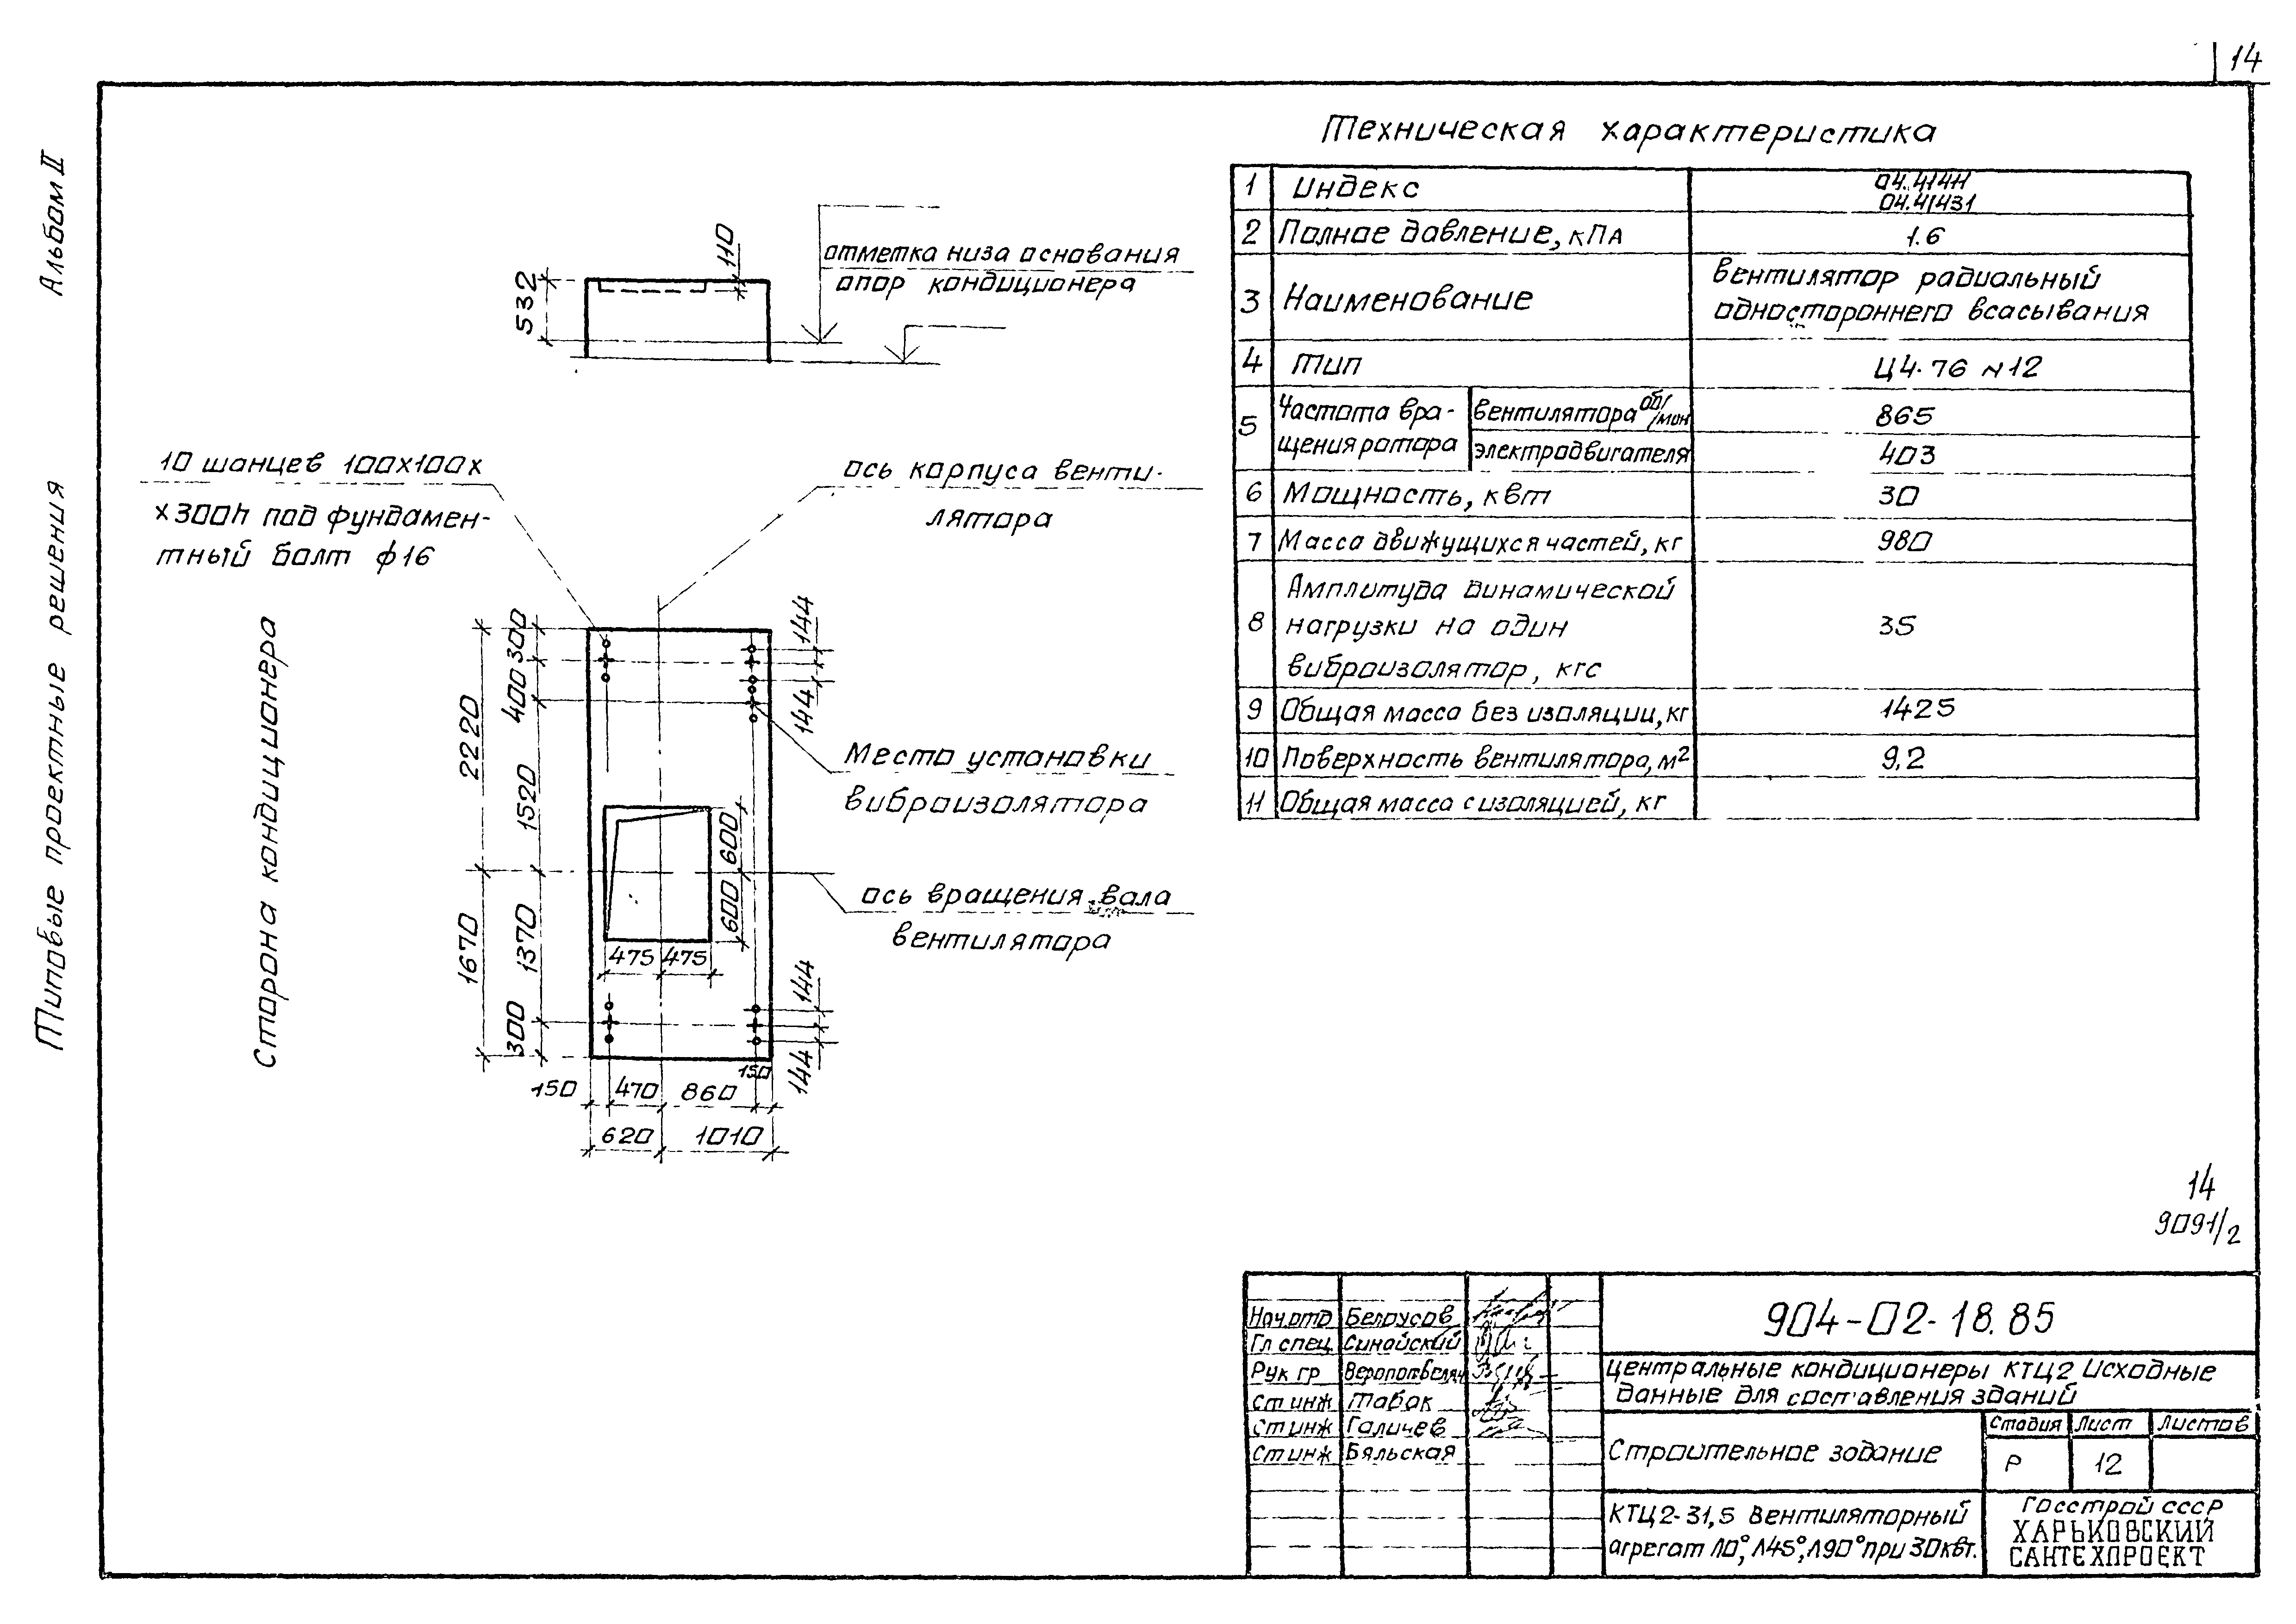 14
Альбом II
Типовые проектные решения
Техническая характеристика
1 Индекс 04.41411
04.41431
2 Полное давление, кПА 1.6
3 Наименование вентилятор радиальный
одностороннего всасывания
4 Тип Ц4-76 N12
5 Частота вра-
щения ротора
вентилятора об/мин 865
электродвигателя 403
6 Мощность, квт 30
7 Масса движущихся частей, кг 980
8 Амплитуда динамической
нагрузки на один
виброизолятор, кгс
35
9 Общая масса без изоляции, кг 1425
10 Поверхность вентилятора, м² 9.2
11 Общая масса с изоляцией, кг
110
532
отметка низа основания
опор кондиционера
10 шанцев 100х100х
х300h под фундамен-
тный болт ф16
ось корпуса венти-
лятора
Сторона кондиционера
300
400
2220
1520
1670
1370
300
144
144
Место установки
виброизолятора
600
600
ось вращения вала
вентилятора
475 475
144
144
150 470 860 150
620 1010
14
9091/2
Нач.отд Белоусов
Гл спец. Синайский
Рук гр
ст инж Табак
ст инж Галичев
ст инж Бяльская
904-02-18.85
Центральные кондиционеры КТЦ2 Исходные
данные для составления зданий
Строительное задание
Стадия Лист Листов
Р 12
КТЦ2-31,5 Вентиляторный
агрегат Л0°, Л45°, Л90° при 30квт.
Госстрой СССР
ХАРЬКОВСКИЙ
САНТЕХПРОЕКТ